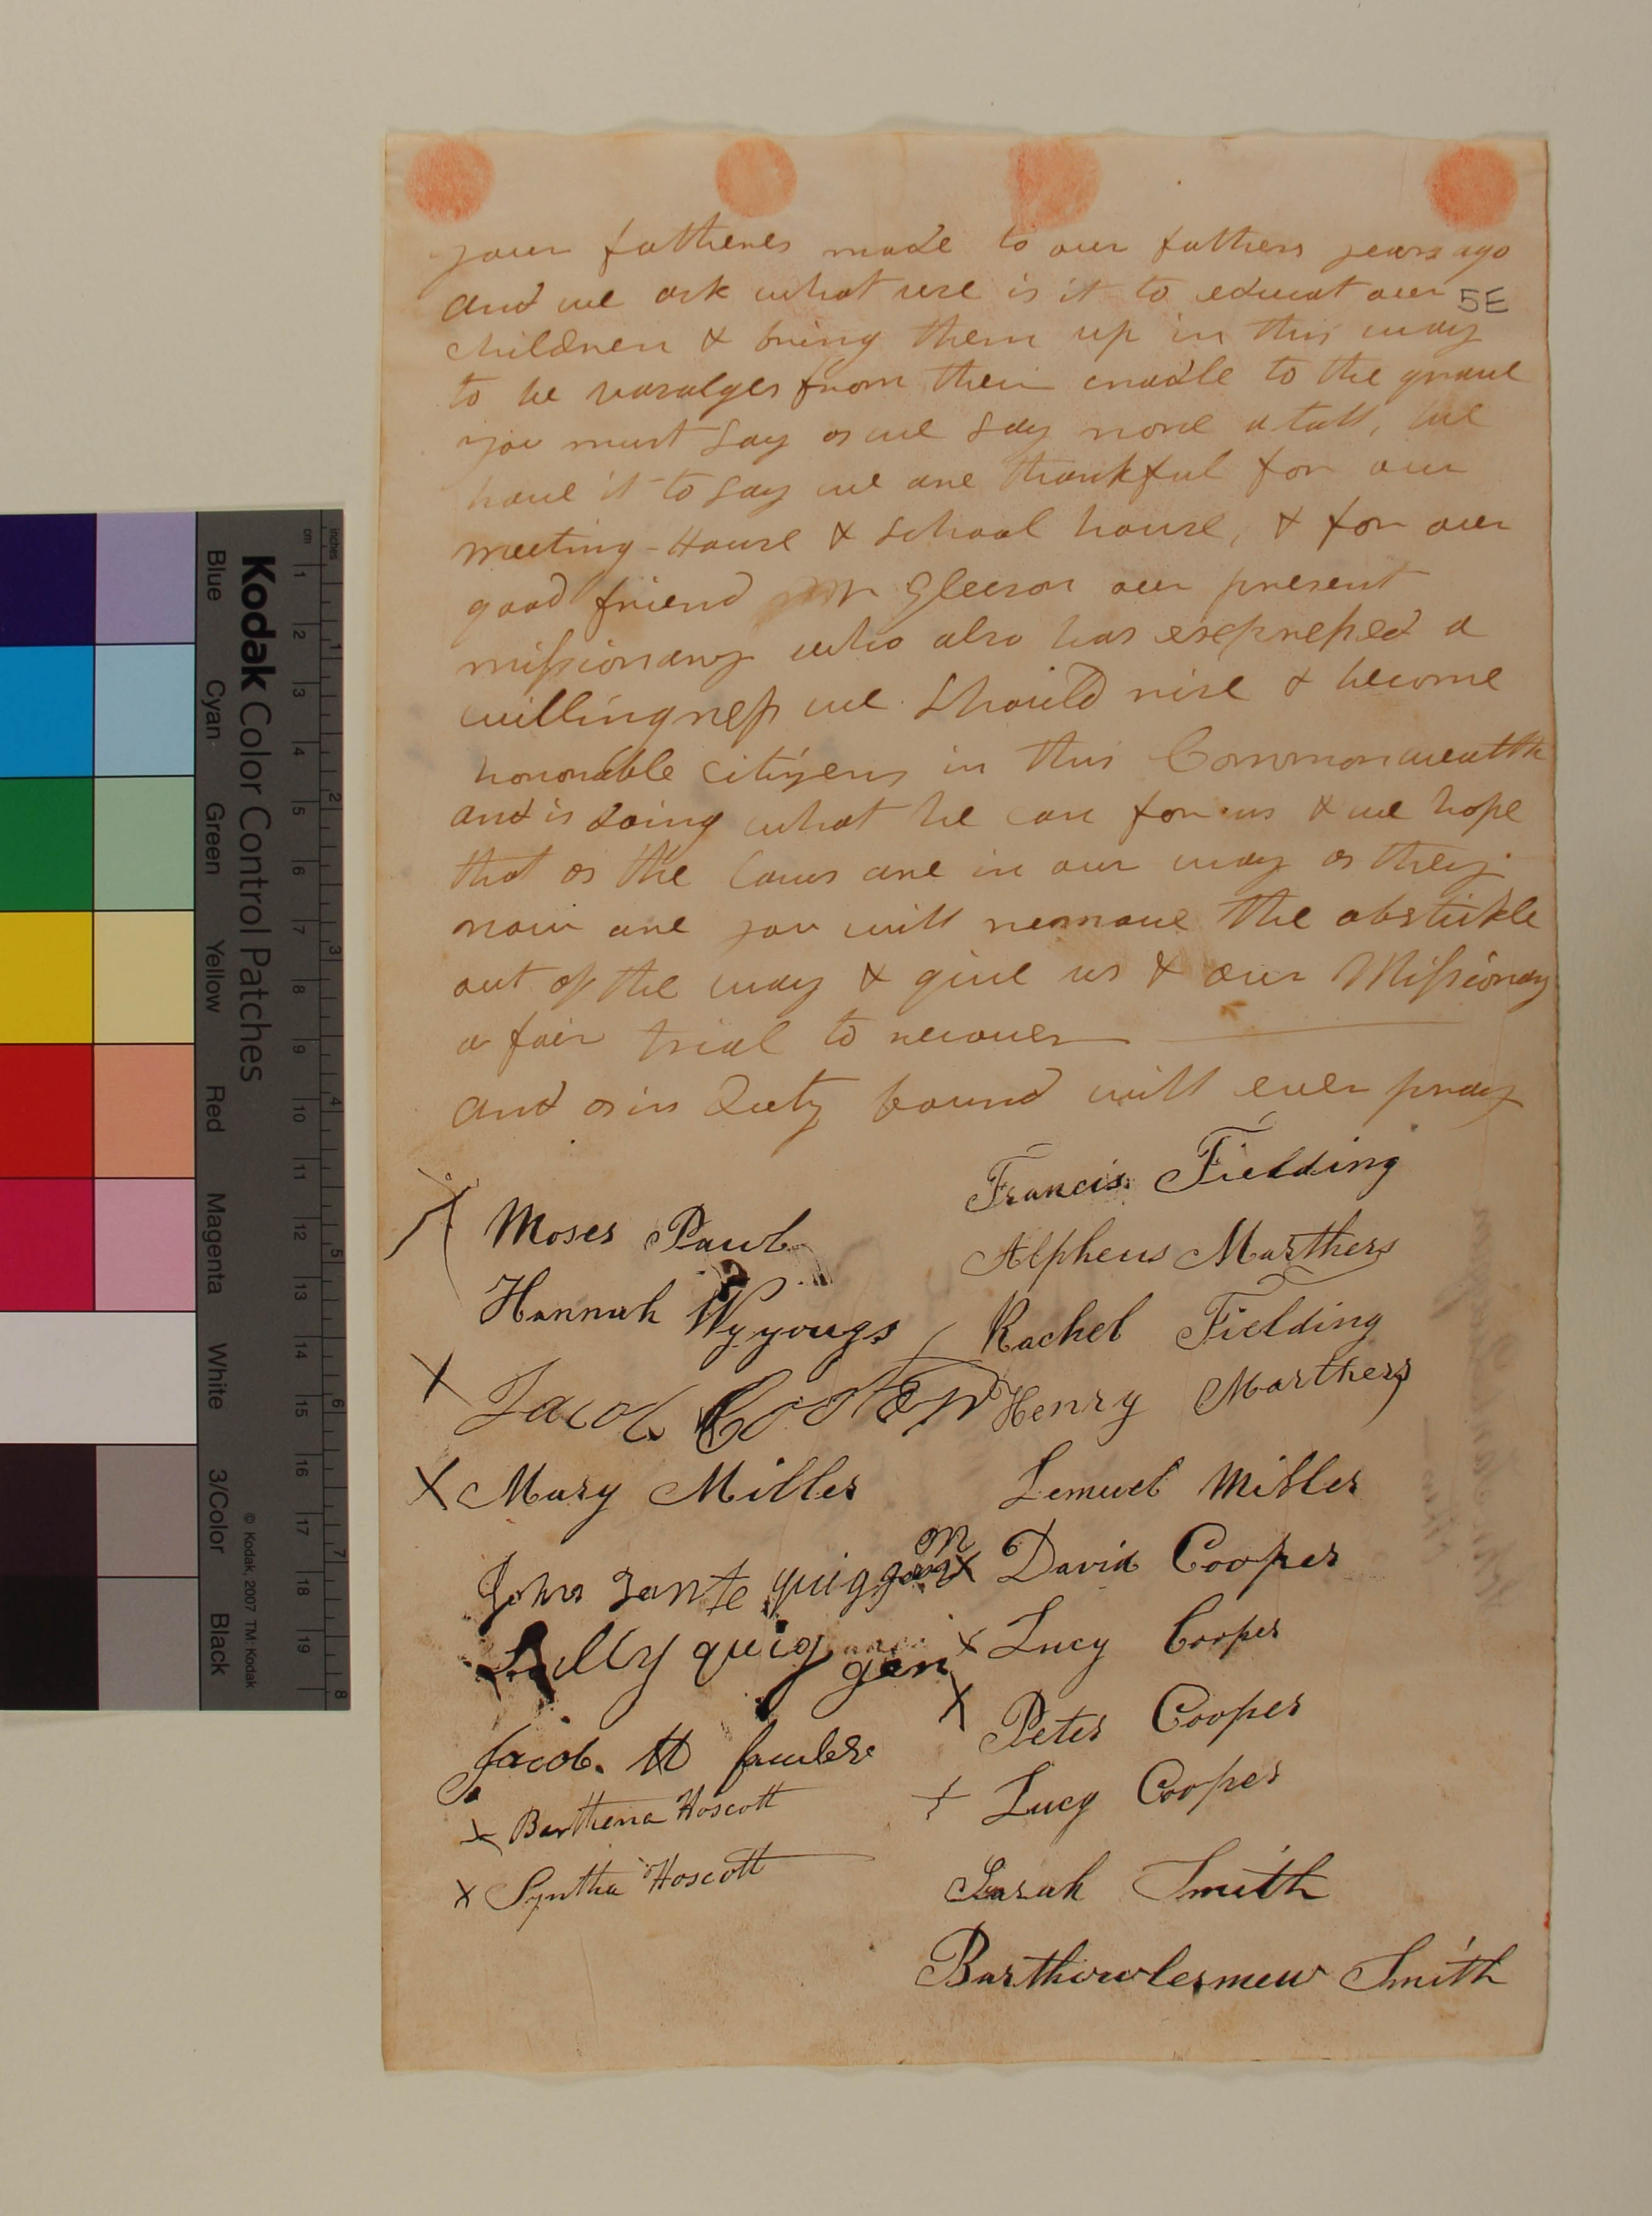 your fatheres made to our fathers years ago
and we ask what use is it to educat our
5E
children & bring them up in this way
to be vasalges from their cradle to the grave
you must say as we say none atall, we
have it to say we are thankful for our
meeting-House & school house, & for our
good friend Mr Gleeson our present
missionary who also has exspressed a
willingness we should rise & become
honorable citizens in this Commonwealth
and is doing what he can for us & we hope
that as the Laws are in our way as they
now are you will remove the obstickle
out of the way & give us & our Missionay
a fair trial to recover
and as in duty bound will ever pray
Moses Paul
Hannah Wyyougs
X Jacob Cooper
X Mary Miller
John Tante quiggon
Lully quiggen
Jacob. H fowler
X Barthena Hoscott
X Syntha Hoscott
Francis Fielding
Alpheus Marthers
Rachel Fielding
Henry Marthers
Lemuel Miller
X David Cooper
X Lucy Cooper
X Peter Cooper
X Lucy Cooper
Sarah Smith
Barthowlermew Smith
Kodak Color Control Patches
© Kodak, 2007 TM: Kodak
Blue Cyan Green Yellow Red Magenta White 3/Color Black
cm 1 2 3 4 5 6 7 8 9 10 11 12 13 14 15 16 17 18 19
inches 1 2 3 4 5 6 7 8